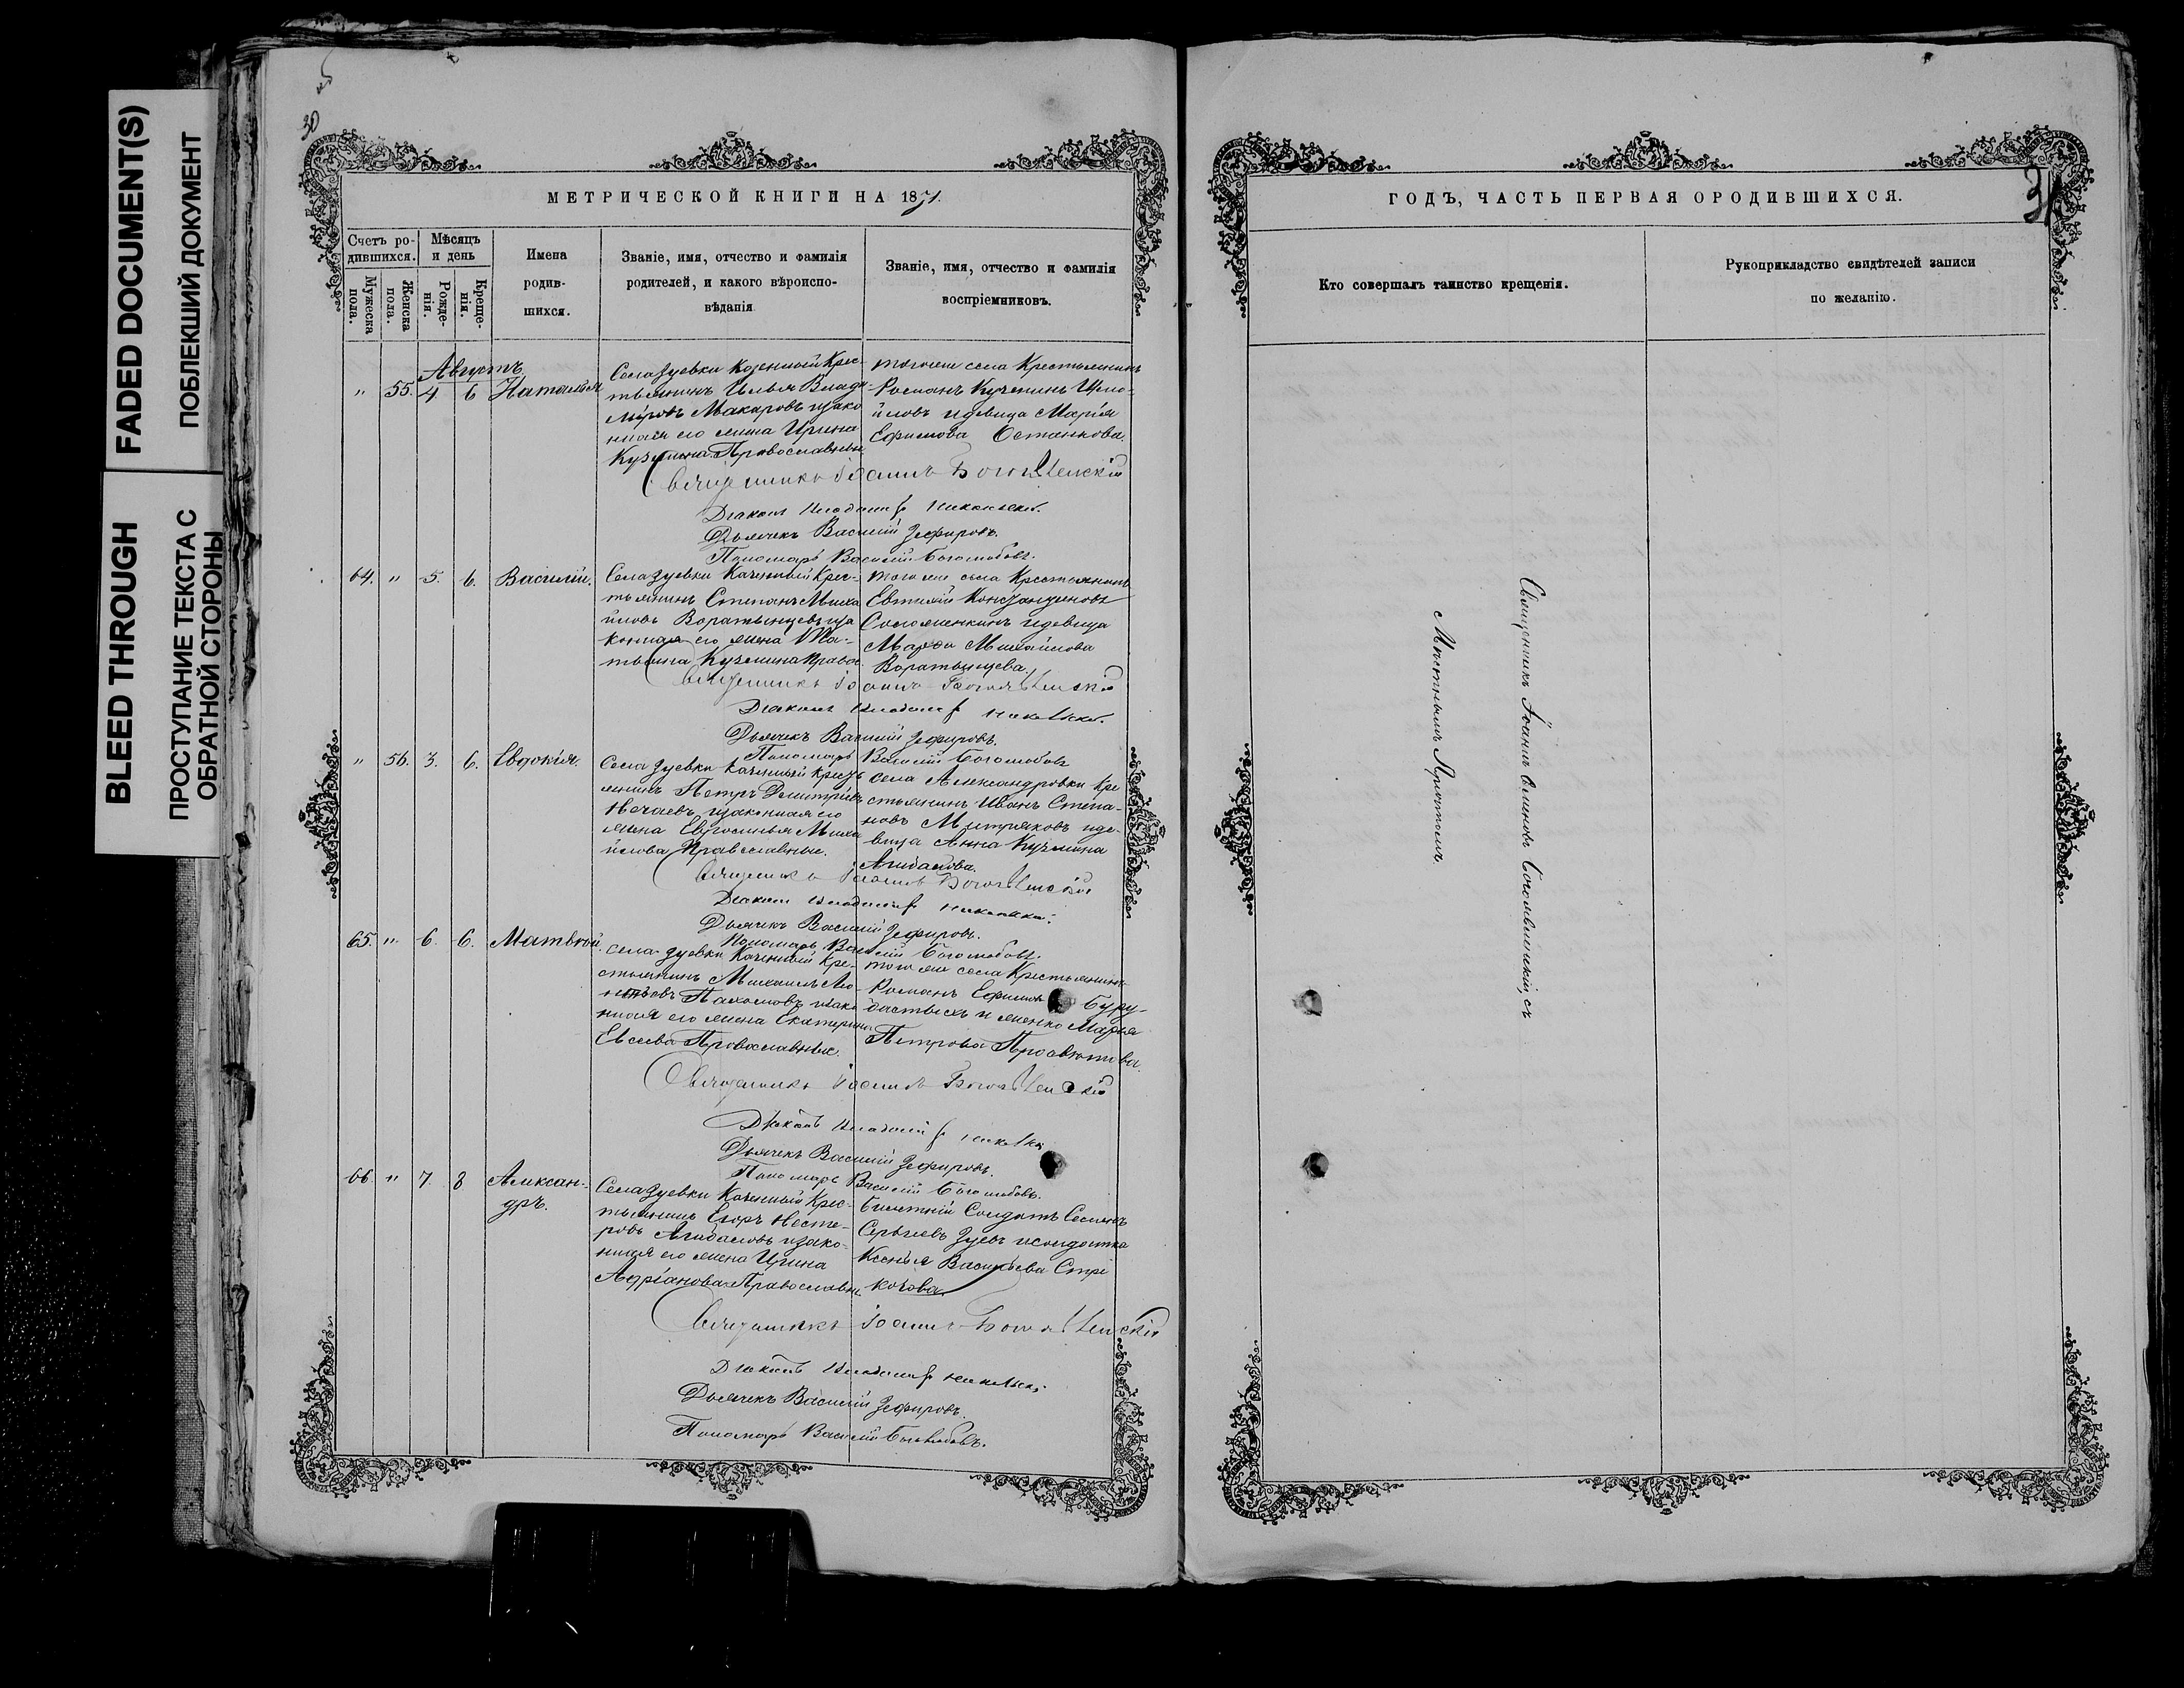 FADED DOCUMENT(S)
ПОБЛЕКШИЙ ДОКУМЕНТ
BLEED THROUGH
ПРОСТУПАНИЕ ТЕКСТА С
ОБРАТНОЙ СТОРОНЫ
30
МЕТРИЧЕСКОЙ КНИГИ НА 1871.
Счетъ ро-
дившихся.
Мужеска
пола.
Женска
пола.
Мѣсяцъ
и день
Рожде-
нія.
Креще-
нія.
Имена
родив-
шихся.
Званіе, имя, отчество и фамилія
родителей, и какого вѣроиспо-
вѣданія
Званіе, имя, отчество и фамилія
воспріемниковъ.
Августъ
" 55. 4 6 Наталія
Села Зуевки Казенный Крес-
тьянинъ Илья Влади-
міровъ Макаровъ изако
нная его жена Ирина
Кузмина Православные
тогоже села Крестьянинъ
Романъ Кузминъ
идевица Марія
Ефимова Останкова.
Священникъ Іоаннъ
Діаконъ Владиміръ
Дьячекъ Василій Зефировъ.
Пономарь Василій Боголюбовъ.
64. " 5. 6. Василій.
Села Зуевки Казенный Крес-
тьянинъ Степанъ Миха
йловъ Воратынцевъ иза
конная его жена Та-
тьяна Кузмина Правос.
того же села Крестьянинъ
Евтихій
идевица
Марѳа Михайлова
Воратынцева.
Священникъ Іоаннъ
Діаконъ Владиміръ
Дьячекъ Василій Зефировъ.
Пономарь Василій Боголюбовъ
" 56. 3. 6. Евдокія.
Села Зуевки Казенный Кресть
янинъ Петръ Димитріевъ
Нечаевъ изаконная его
жена Евфросинья Миха
йлова Православные.
села Александровки Кре
стьянинъ Иванъ Степа-
новъ Митряковъ иде-
вица Анна Кузмина
Агибалова.
Священникъ Іоаннъ
Діаконъ Владиміръ
Дьячекъ Василій Зефировъ.
Пономарь Василій Боголюбовъ.
65. " 6. 6. Матвѣй.
Села Зуевки Казенный Кре-
стьянинъ Михаилъ
Пахомовъ изако
нная его жена Екатерина
Евсеева Православные.
того же села Крестьянинъ
Романъ Ефимовъ
и женка Марья
Петрова
Священникъ Іоаннъ
Діаконъ Владиміръ
Дьячекъ Василій Зефировъ.
Пономарь Василій Боголюбовъ.
66. " 7. 8 Алексан-
дръ.
Села Зуевки Казенный Крес-
тьянинъ Егоръ Несте-
ровъ Агибаловъ изако-
нная его жена Ирина
Адріанова Православн.
Билетный Солдатъ Семенъ
Сергѣевъ Зуевъ исолдатка
Ксенья Васильева Стрі
кочова
Священникъ Іоаннъ
Діаконъ Владиміръ
Дьячекъ Василій Зефировъ.
Пономарь Василій Боголюбовъ.
ГОДЪ, ЧАСТЬ ПЕРВАЯ ОРОДИВШИХСЯ.
31
Кто совершалъ таинство крещенія.
Рукоприкладство свидѣтелей записи
по желанію.
Священникъ Іоаннъ
Мѣстнымъ Причтомъ.